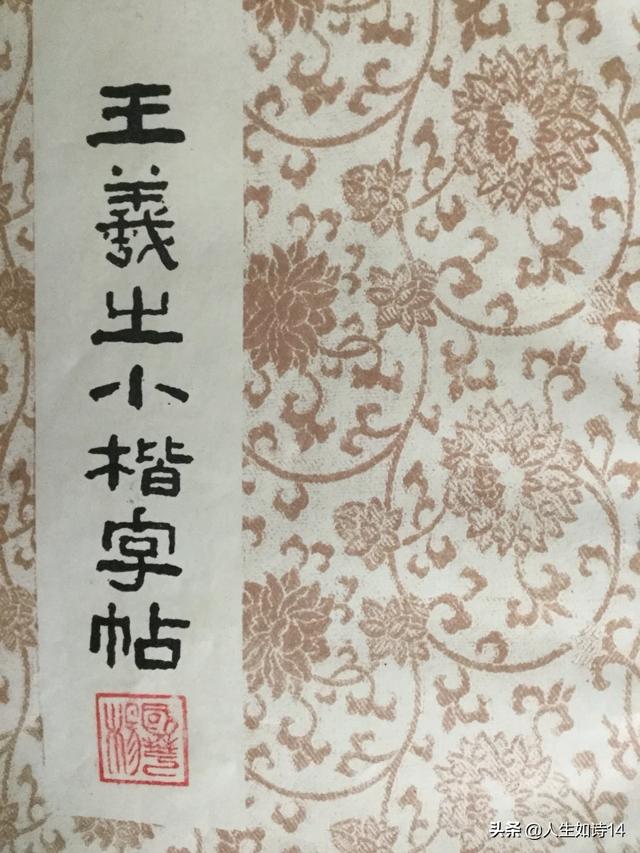 王羲之小楷字帖
头条 @人生如诗14